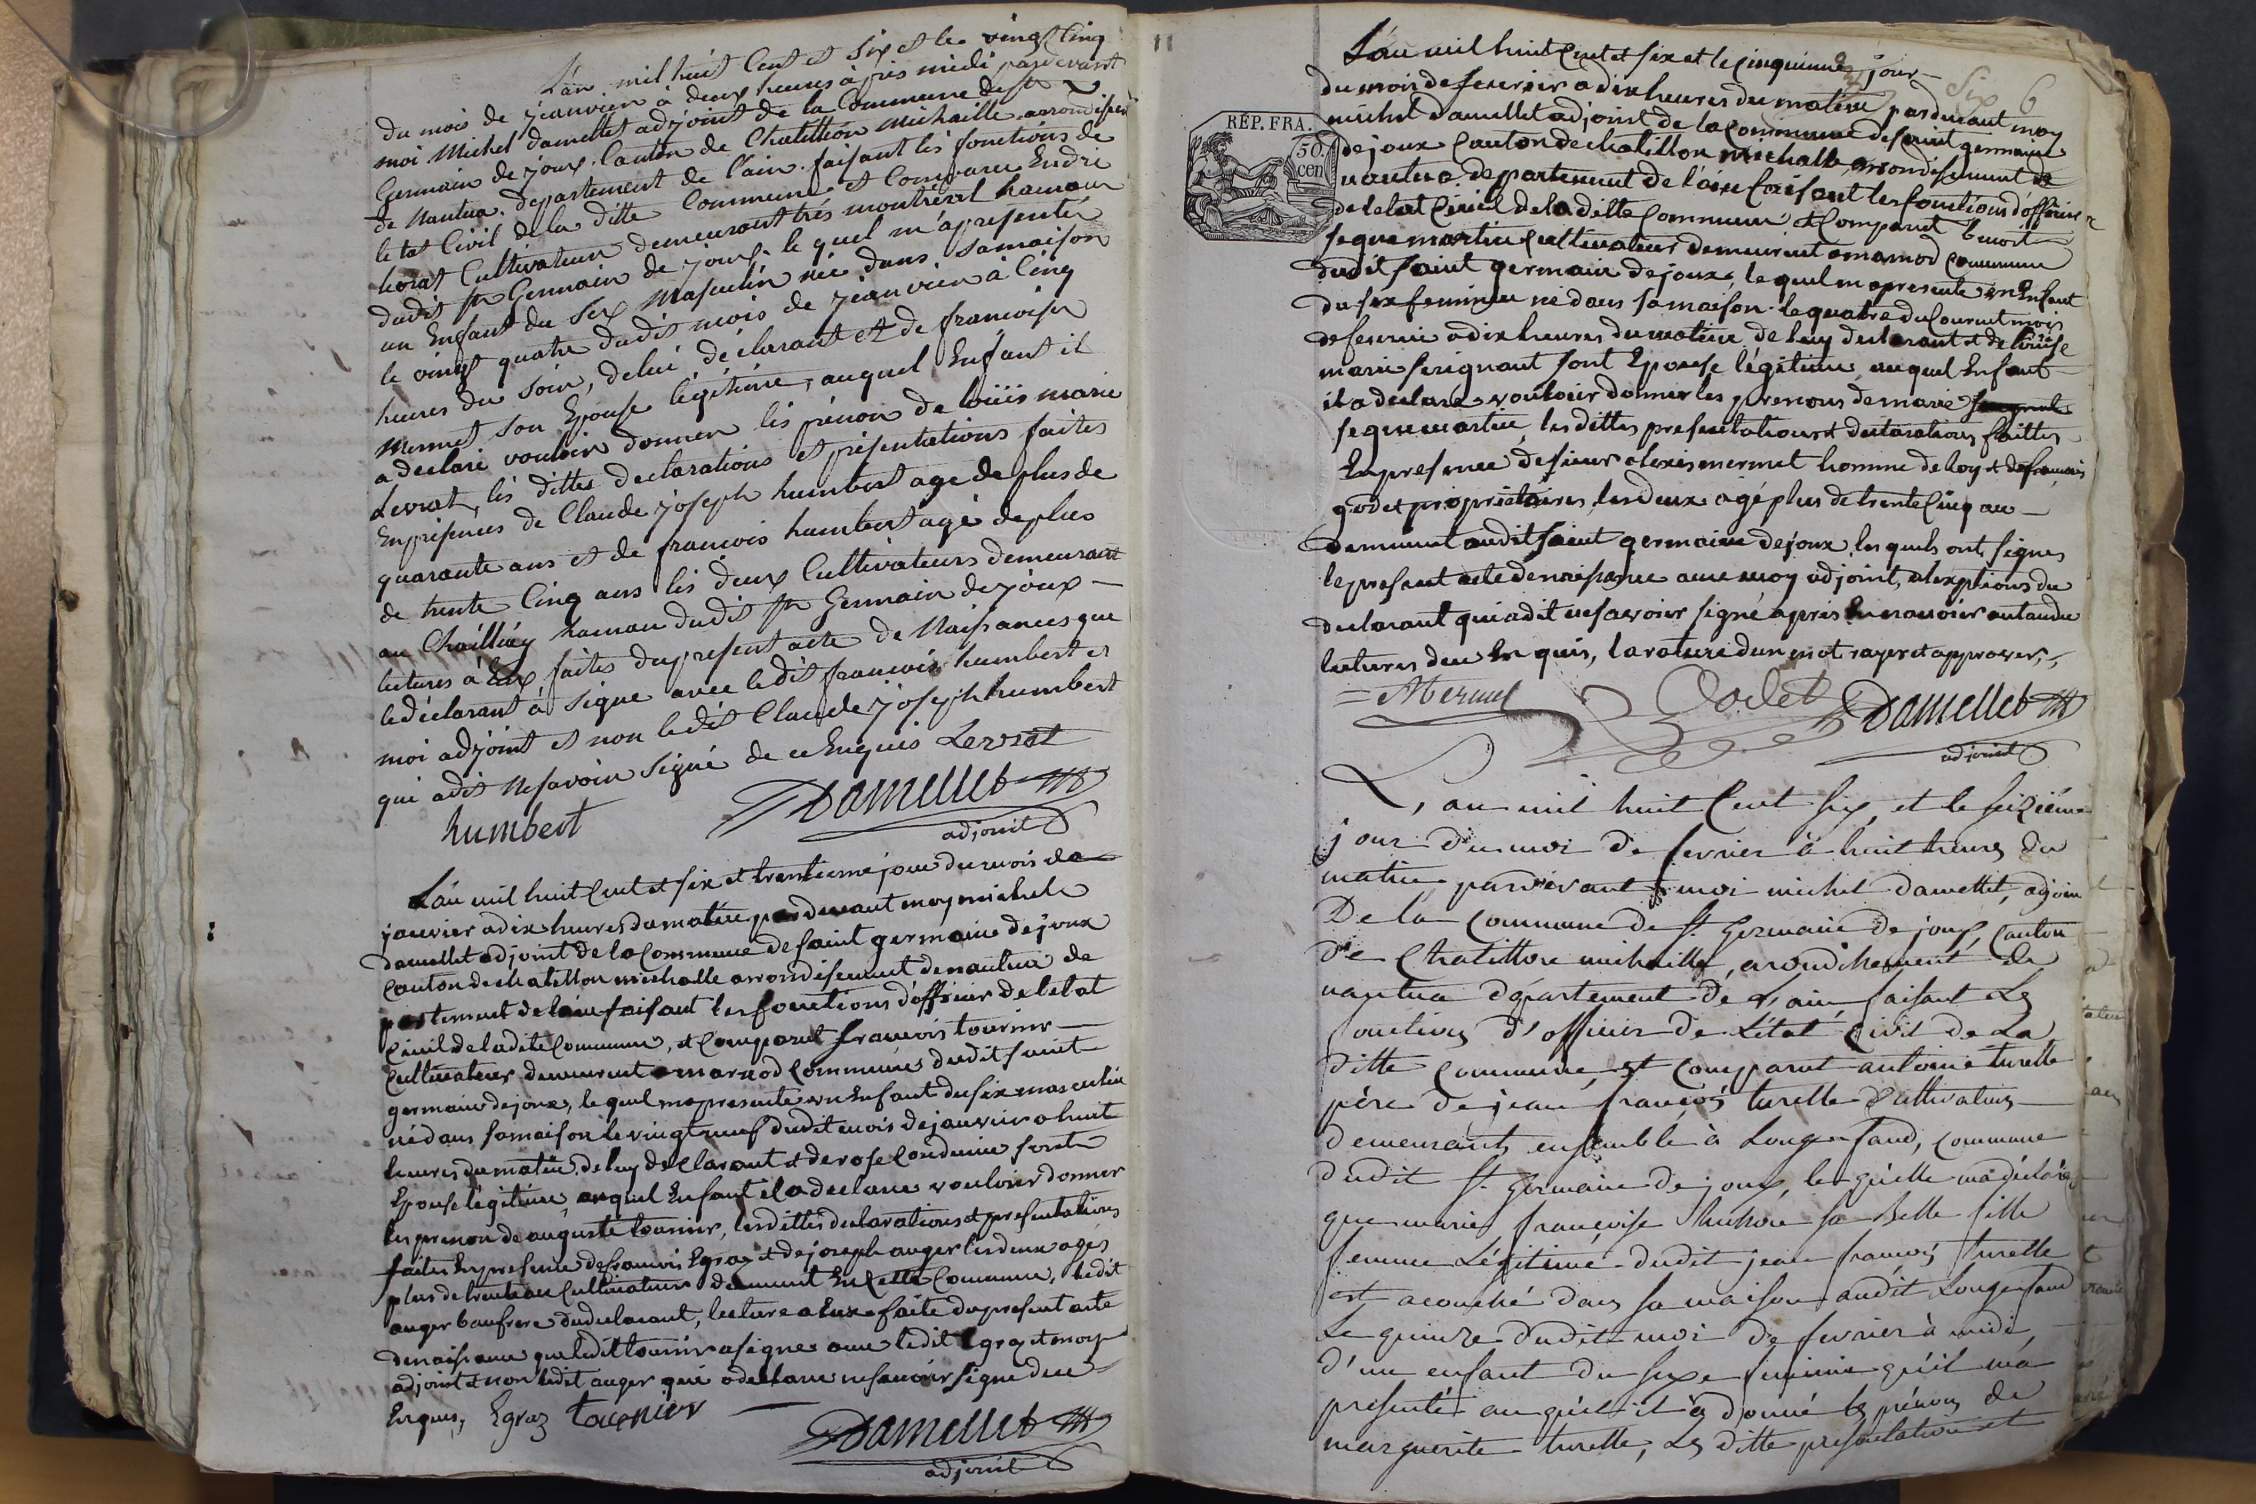 L'an mil huit Cent et Six et le vingt Cinq
du mois de jeanvier à deux heures àpris midi pardevant
moi Michel Damellet adjoint de la Commune de st
Germain de joux Canton de Chatillion Michaille arrondisem
de Nantua departement de l'ain faisant lés fonctions de
letat Civil de la ditte Commune et Comparu
Cultivateur demeurant trés montréal hamaux
dudit st Germain de joux le quel m'a presenter
un Enfant du Sex Masculin née dans Samaison
le vingt quatre dudit mois de jeanvier à Cinq
heures du Soir, de lui déclarant et de francoise
Mermet son Epouse légitime, auquel Enfant il
a declaré vouloir donner lés prénon de loüis marie
Levrat, lés dittes declarations et présentations faites
En présences de Claude joseph humbert agé de plus de
quarante ans et de francois humbert agé de plus
de trente Cinq ans lés deux Cultivateurs demeurant
au hamau dudit st Germain de joux
lectures à Eux faites du present acte de Naissances que
le déclarant à signe avec ledit francois humbert et
moi adjoint et non ledit Claude joseph humbert
qui adit Ne savoir Signé de ce Enquis Levrat
humbert Damellet
adjoint
L'an mil huit Cent et six et trentieme jour du mois de
janvier a dix heures du matin par devant moy michel
damellet adjoint de la Commune de saint germain de joux
Canton de chatillon michalle arrondisement de nantua de
partement de lain faisant les fonctions d'officier de letat
Civil de ladite Commune, et Comparut francois tournier
Cultivateur demeurent a marnod Commune dudit saint
germain de joux, le quel ma presente un Enfant du sex masculin
né dans sa maison le vingt neuf dudit mois de janvier a huit
heures du matin de luy declarant et de rose Condurier sont
Epouse legitime, auquel Enfant il a declare vouloir donner
les prenon de auguste tournier, les dittes declarations et presentations
faites En presence de francois Egraz et de joseph auger les deux agés
plus de trente an Cultivateurs demeurent En Cette Commune, ledit
auger baufrere du declarant, lecture a Eux faite du present acte
de naissance que ledit tournier a signe avec ledit Egraz et moy
adjoint et non ledit auger qui a declare ne savoir signe de ce
Enquis, Egraz tournier
Damellet
adjoint
11
Six 6
L'an mil huit Cent et six et le Cinquieme jour
du mois de fevrier a dix heures du matin par devant moy
michel Damellet adjoint de la Commune de saint germain
de joux Canton de chatillon michalle arrondisement de
nantua departement de l'ain faisant les fonctions d'officier
de letat Civil de la ditte Commune et Comparut benoit
segue martin Cultivateur demeurent a marnod Commune
dudit saint germain de joux, le quel ma presente un Enfant
du sex feminin né dans sa maison le quatre du Courent mois
de fevrier a dix heures du matin de luy declarant et de louise
marie serignant sont Epouse légitime auquel Enfant
il a declaré vouloir donner les prenons de marie
segue martin, les dittes presentations et declarations faittes
En presence de sieur alexis mermet homme de loy et de francois
godet proprietaires, les deux agé plus de trente Cinq an
demeurent audit saint germain de joux les quels ont signes
le present acte de naissance avec moy adjoint, a lexptions du
declarant qui a dit ne savoir signé apres En navoir antandu
lectures de ce En quis, la rature dun mot rayer et approuver,
Mermet Godet Damellet
adjoint
L'an mil huit Cent Six, et le seizième
jour du moi de fevrier à huit heures du
matin pardévant moi michel damellet, adjoin
De la Commune de st Germain de joux, Canton
de Chatillon michaille, arondichement de
nantua département de l'ain faisant Les
fonctions d'officier de L'état Civil de La
ditte Commune, et Comparut antoine turelle
père de jean françois turelle Cultivateurs
demeurants ensemble à Longe fand, commune
dudit st Germain de joux, le quelle m'a déclaré
que marie françoise huchon sa Belle fille
femme Légitime dudit jean françois turelle
est acouché dans sa maison audit Longe fand
Le quinze dudit moi de fevrier à midi,
d'un enfant du sexe féminin qu'il m'a
présenté au quel il à donné les prénoms de
marguerite turelle, Les ditte présentation et
REP. FRA.
50
cen